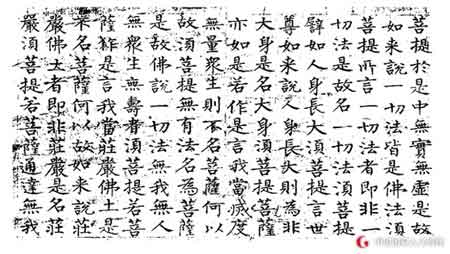 菩提於是中無實無虛是故
如来說一切法皆是佛法湏
菩提所言一切法者即非一
切法是故名一切法湏菩提
譬如人身長大湏菩提言世
尊如来說人身長大則為非
大身是名大身湏菩提菩薩
亦如是若作是言我當滅度
無量衆生則不名菩薩何以
故湏菩提無有法名為菩薩
是故佛說一切法無我無人
無衆生無壽者湏菩提若菩
薩作是言我當莊嚴佛土是
不名菩薩何以故如来說莊
嚴佛土者即非莊嚴是名莊
嚴湏菩提若菩薩通達無我